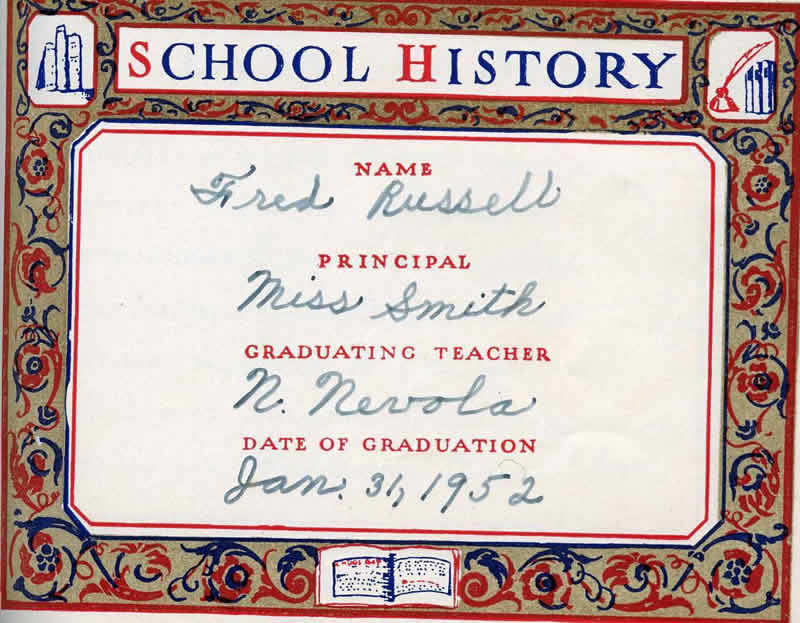 SCHOOL HISTORY
NAME
Fred Russell
PRINCIPAL
Miss Smith
GRADUATING TEACHER
N. Nevola
DATE OF GRADUATION
Jan. 31, 1952